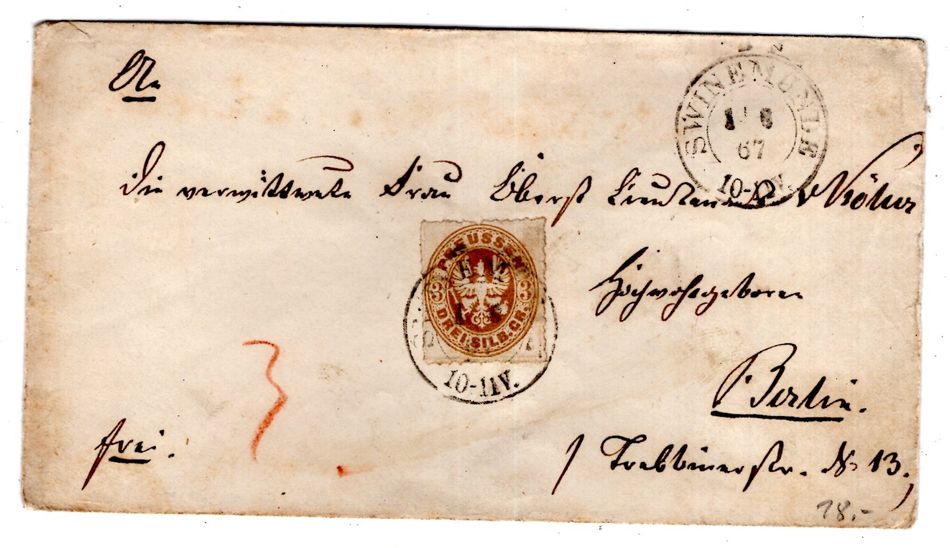 An
SWINEMÜNDE
1 6
67
10-11V.
Die verwittwete Frau Oberst Lieutenant v
PREUSSEN
3 3
DREI SILB. GR.
10-11V.
Hochwohlgeboren
3
Berlin.
frei.
/ Trebbinerstr. No 13.)
18.-